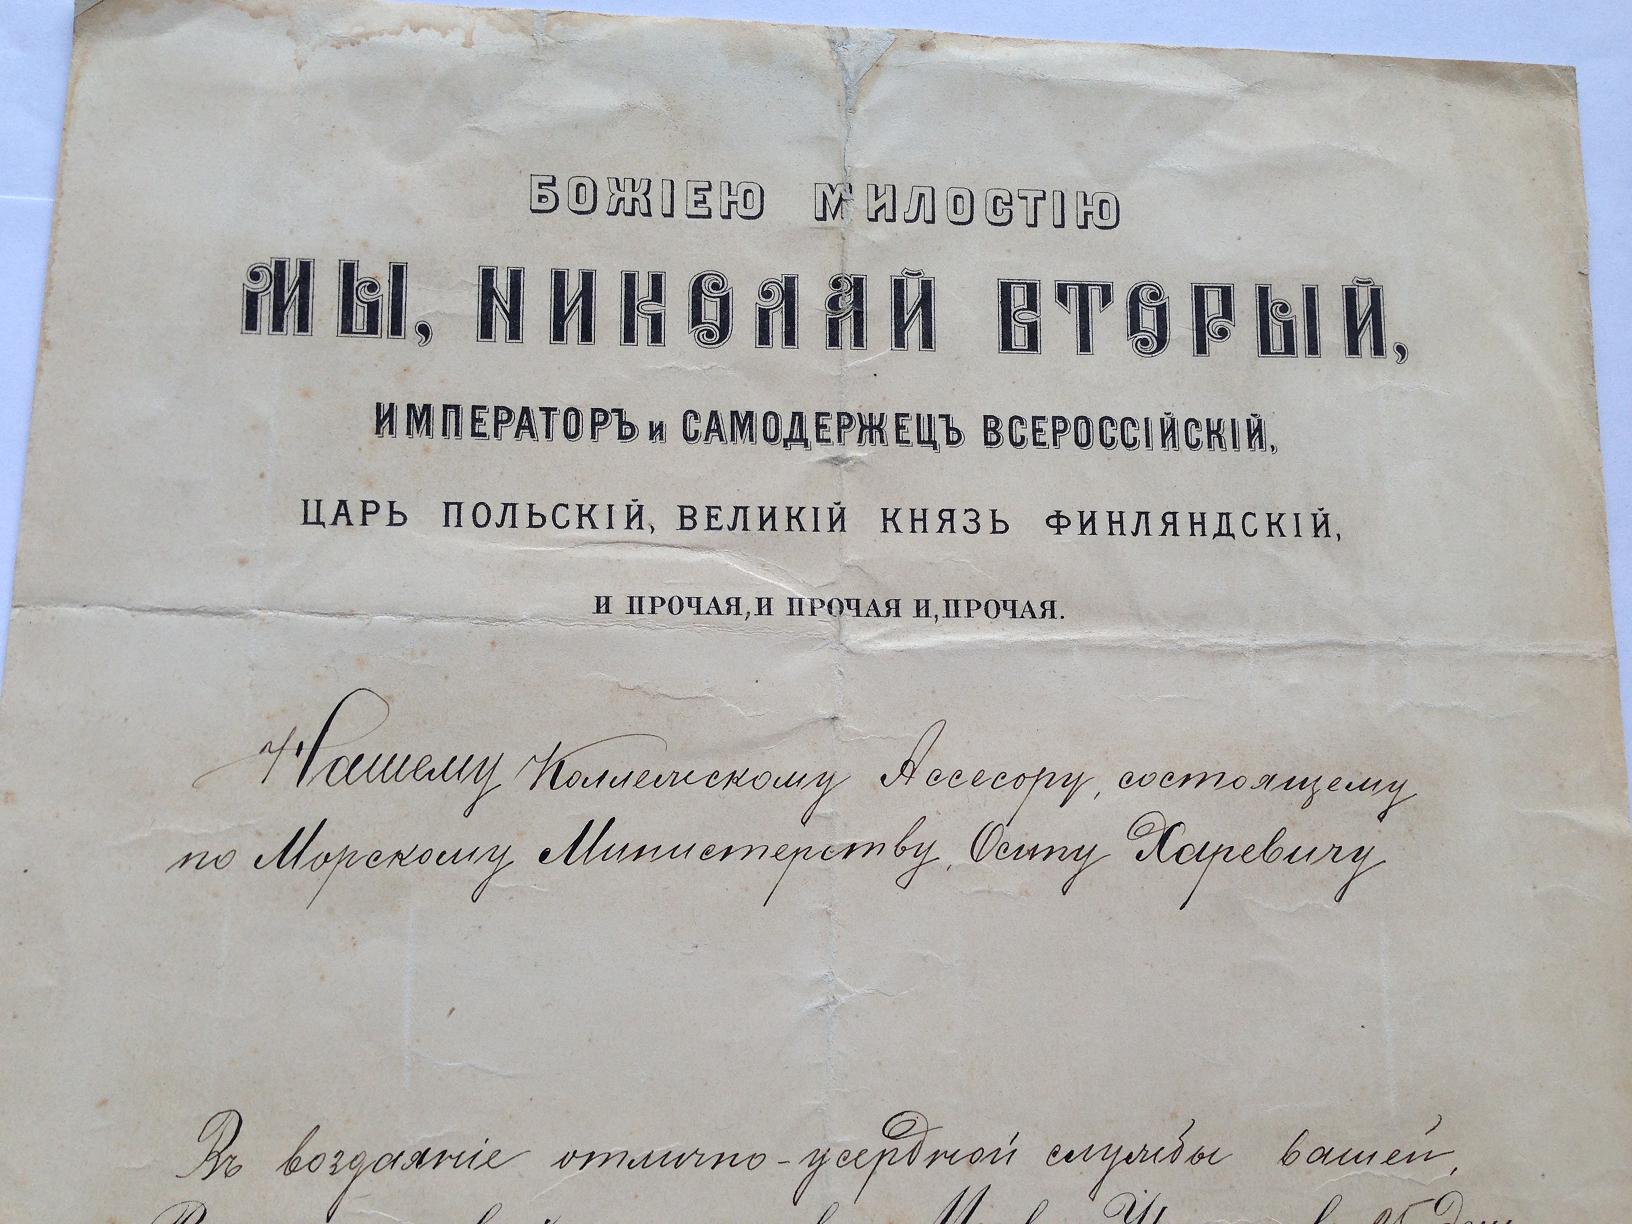 БОЖІЕЮ МИЛОСТІЮ
МЫ, НИКОЛАЙ ВТОРЫЙ,
ИМПЕРАТОРЪ и САМОДЕРЖЕЦЪ ВСЕРОССІЙСКІЙ,
ЦАРЬ ПОЛЬСКІЙ, ВЕЛИКІЙ КНЯЗЬ ФИНЛЯНДСКІЙ,
И ПРОЧАЯ, И ПРОЧАЯ И, ПРОЧАЯ.
Нашему Коллежскому Ассесору, состоящему
по Морскому Министерству, Осипу Харевичу
Въ воздаяніе отлично-усердной службы вашей,